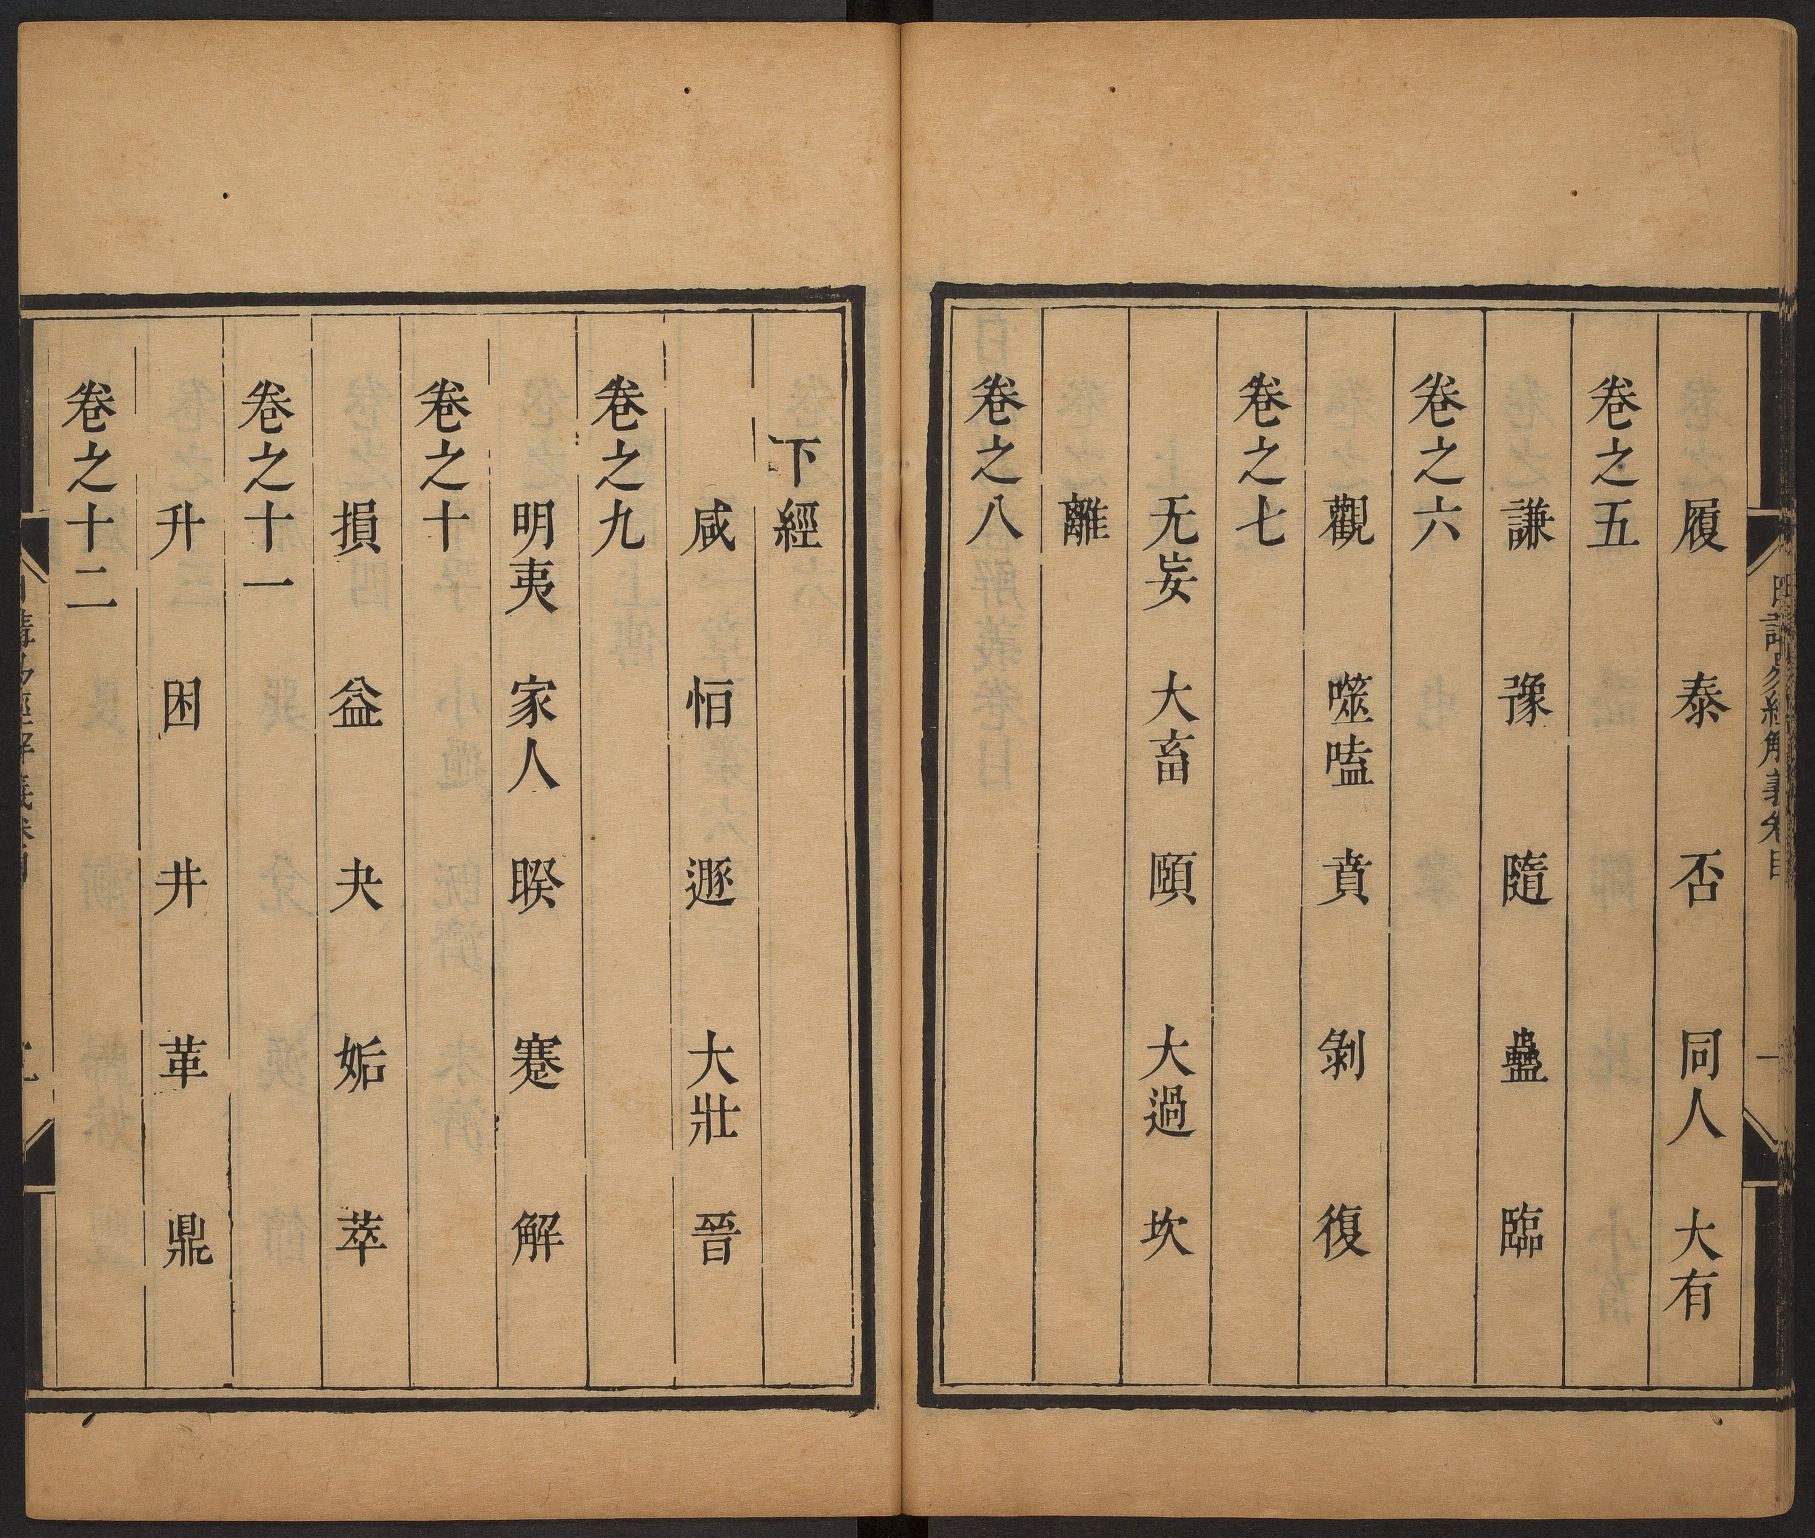 履 泰 否 同人 大有
卷之五
謙 豫 隨 蠱 臨
卷之六
觀 噬嗑 賁 剝 復
卷之七
无妄 大畜 頤 大過 坎
離
卷之八
下經
咸 恒 遯 大壯 晉
卷之九
明夷 家人 睽 蹇 解
卷之十
損 益 夬 姤 萃
卷之十一
升 困 井 革 鼎
卷之十二